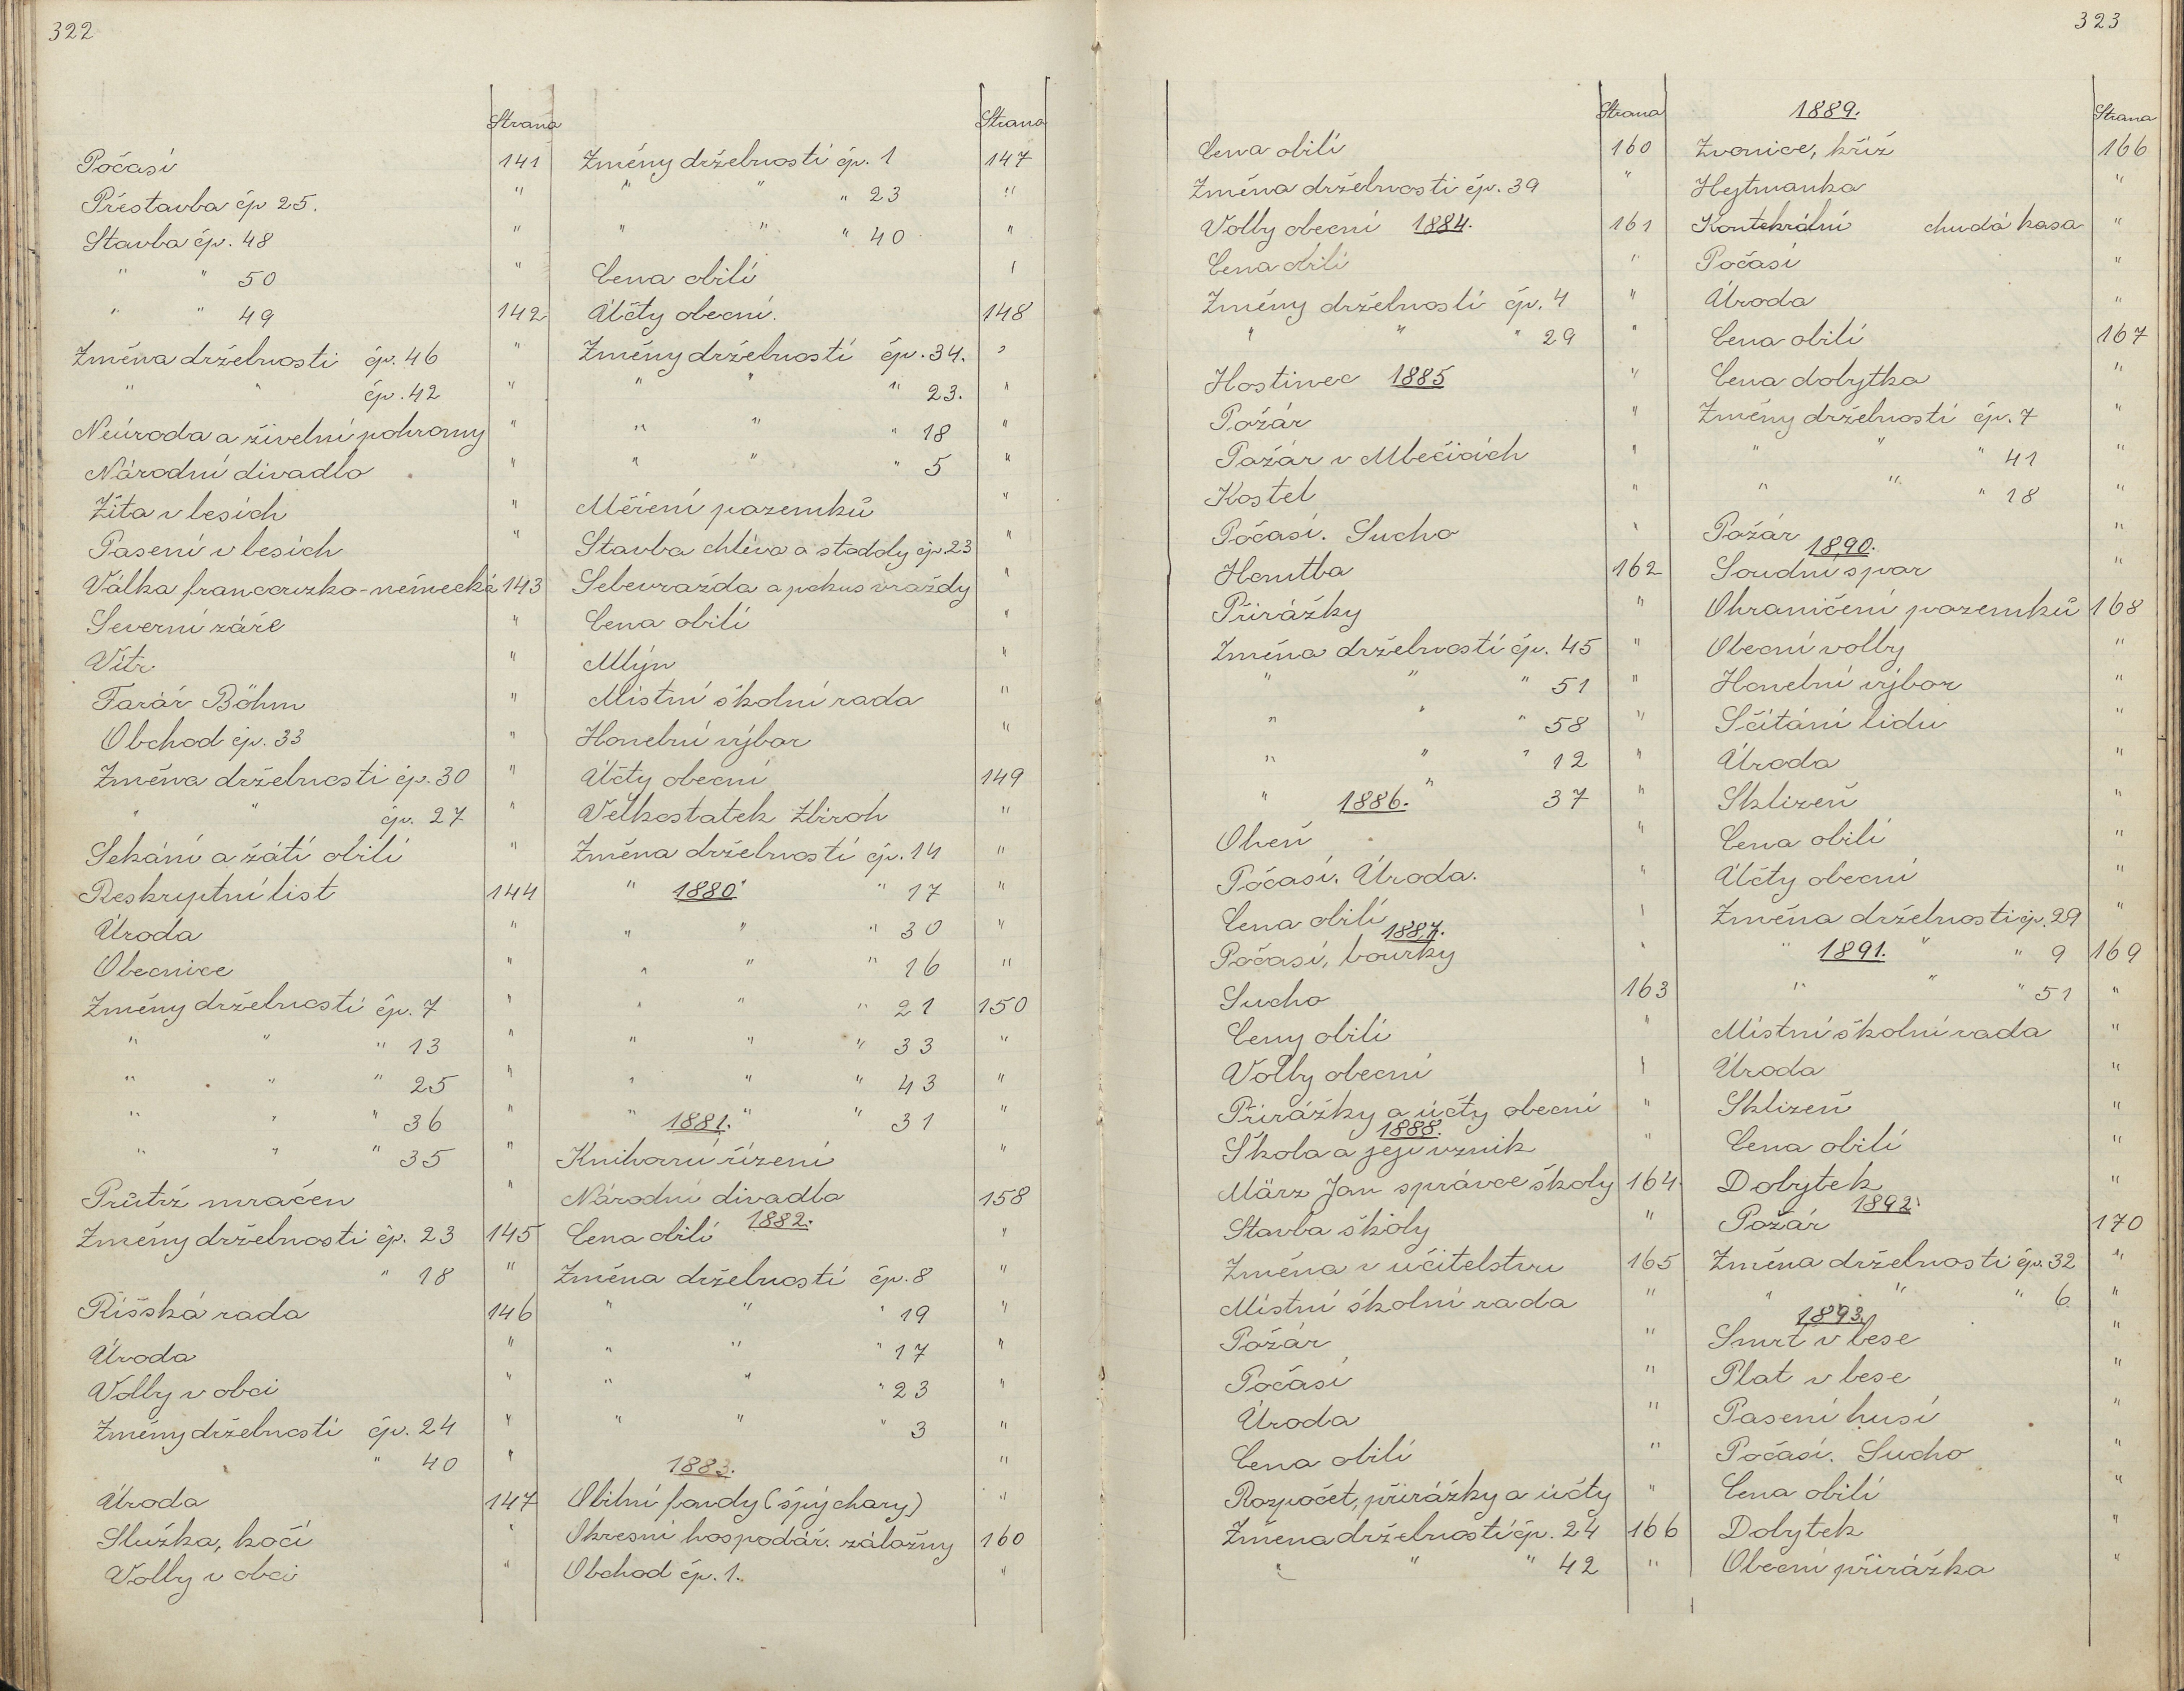 322
Strana
Počasí 141
Přestavba čp 25. "
Stavba čp. 48 "
" " 50 "
" " 49 142
Změna držebnosti čp. 46 "
" " čp. 42 "
Neúroda a živelní pohromy "
Národní divadlo "
Žita v lesích "
Pasení v lesích "
Válka francouzko-německá 143
Severní záře "
Vítr "
Farář Böhm "
Obchod čp. 33 "
Změna držebnosti čp. 30 "
" " čp. 27 "
Sekání a žátí obilí "
Reskryptní list 144
Úroda "
Obecnice "
Změny držebností čp. 7 "
" " " 13 "
" " " 25 "
" " " 36 "
" " " 35 "
Průtrž mračen "
Změny držebnosti čp. 23 145
" 18 "
Říšská rada 146
Úroda "
Volby v obci "
Změny držebnosti čp. 24 "
" " 40 "
Úroda 147
Služka, kočí "
Volby v obci "
Strana
Změny držebností čp. 1 147
" " " 23 "
" " " 40 "
Cena obilí "
Účty obecní. 148
Změny držebností čp. 34. "
" " " 23. "
" " " 18 "
" " " 5 "
Měření pozemků "
Stavba chléva a stodoly čp 23 "
Sebevražda a pokus vraždy "
Cena obilí "
Mlýn "
Místní školní rada "
Honební výbor "
Účty obecní 149
Velkostatek Zbiroh "
Změna držebností čp. 14 "
" 1880 " " 17 "
" " " 30 "
" " " 16 "
" " " 21 150
" " " 33 "
" " " 43 "
" 1881. " " 31 "
Knihovní řízení "
Národní divadlo 158
Cena obilí 1882. "
Změna držebností čp. 8 "
" " " 19 "
" " " 17 "
" " " 23 "
" " " 3 "
1883. "
Obilní fondy (špýchary) "
Okresní hospodář. záložny 160
Obchod čp. 1. "
323
Strana
Cena obilí 160
Změna držebnosti čp. 39 "
Volby obecní 1884. 161
Cena obilí "
Změny držebností čp. 4 "
" " " 29 "
Hostinec 1885 "
Požár "
Požár v Mlečicích "
Kostel "
Počasí. Sucho "
Honitba 162
Přirážky "
Změna držebností čp. 45 "
" " " 51 "
" " " 58 "
" " " 12 "
" 1886. " 37 "
Oheň "
Počasí. Úroda. "
Cena obilí "
1887.
Počasí, bouřky "
Sucho 163
Ceny obilí "
Volby obecní "
Přirážky a účty obecní "
1888.
Škola a její vznik "
März Jan správce školy 164
Stavba školy "
Změna v učitelstvu 165
Místní školní rada "
Požár "
Počasí "
Úroda "
Cena obilí "
Rozpočet, přirážky a účty "
Změna držebností čp. 24 166
" " " 42 "
1889. Strana
Zvonice, kříž 166
Hejtmanka "
chudá kasa "
Počasí "
Úroda "
Cena obilí 167
Cena dobytka "
Změny držebností čp. 7 "
" " " 41 "
" " " 18 "
Požár "
1890.
Soudní spor "
Ohraničení pozemků 168
Obecní volby "
Honební výbor "
Sčítání lidu "
Úroda "
Sklizeň "
Cena obilí "
Účty obecní "
Změna držebnosti čp. 29 "
" 1891. " " 9 169
" " " 51 "
Místní školní rada "
Úroda "
Sklizeň "
Cena obilí "
Dobytek "
1892.
Požár 170
Změna držebnosti čp. 32 "
" " " 6 "
1893.
Smrt v lese "
Plat v lese "
Pasení husí "
Počasí. Sucho "
Cena obilí "
Dobytek "
Obecní přirážka "